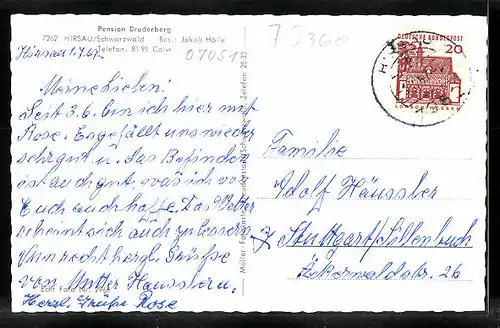 Pension Bruderberg
7262 HIRSAU/Schwarzwald Bes.: Jakob Hölle
Telefon: 81 91 Calw
07051
73360
DEUTSCHE BUNDESPOST
20
LORSCH/HESSEN
Hirsau 1.7.67.
Meine Lieben!
Seit 3.6. bin ich hier mit
Rose. Es gefällt uns wieder
sehr gut u. das Befinden
ist auch gut, was ich von
Euch auch hoffe. Das Wetter
scheint sich auch zu bessern.
Nun recht herzl. Grüße
von Mutter Haussler u.
Herzl. Grüße Rose
Echt Foto Nr.
Familie
Adolf Häussler
Stuttgart/Sillenbuch
26